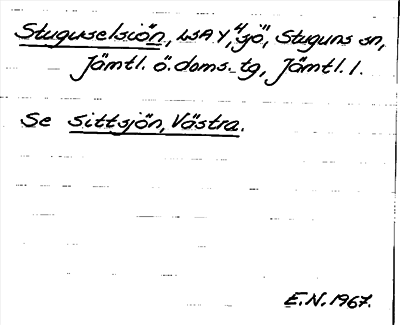 Stuguselsjön, WSA Y, "sjö", Stuguns sn,
Jämtl. ö. doms. tg, Jämtl. l.
Se Sittsjön, Västra.
E.N. 1967.